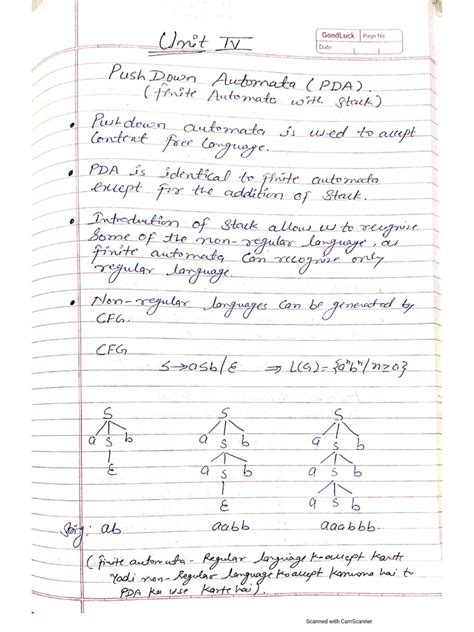 GoodLuck Page No
Date
Unit IV
Push Down Automata (PDA).
(finite Automata with Stack)
• Pushdown automata is used to accept
Context free Language.
• PDA is identical to finite automata
except for the addition of Stack.
• Introduction of Stack allow us to recognise
Some of the non-regular language, as
finite automata can recognise only
regular language.
• Non-regular languages can be generated by
CFG.
CFG
S→aSb/ε ⇒ L(G) = {aⁿbⁿ/n≥0}
S S S
a S b a S b a S b
ε a S b a S b
ε a S b
String: ab aabb aaabbb.
(finite automata - Regular language Ko accept Karte
Yadi non-Regular language Ko accept Karwana hai to
PDA Ka use Karte hai).
Scanned with CamScanner